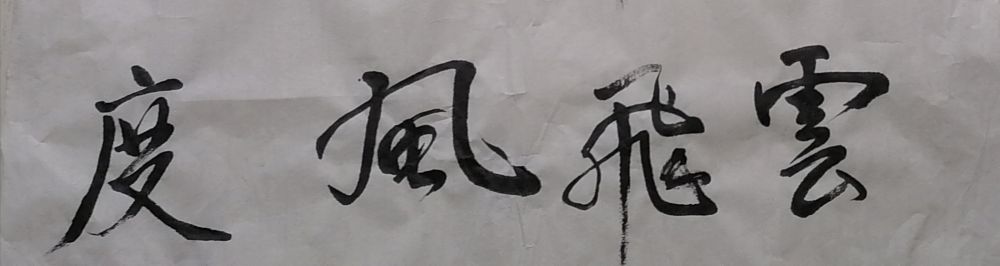 雲飛風度